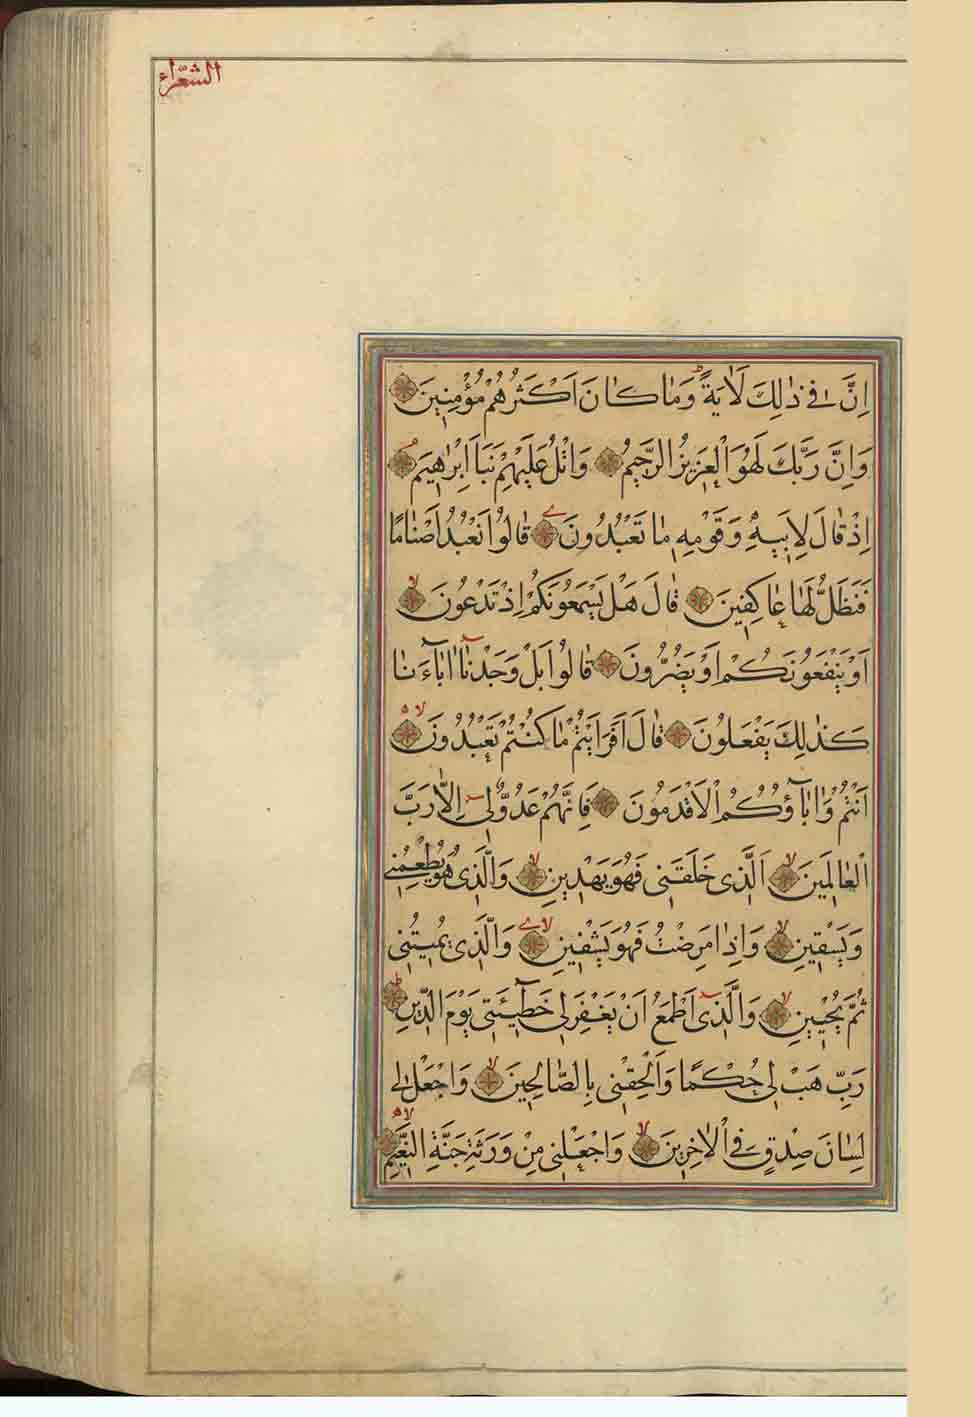 الشعراء
اِنَّ فِي ذٰلِكَ لَاٰيَةً وَمَا كَانَ اَكْثَرُهُمْ مُؤْمِنِينَ
وَاِنَّ رَبَّكَ لَهُوَ الْعَزِيزُ الرَّحِيمُ وَاتْلُ عَلَيْهِمْ نَبَاَ اِبْرٰهِيمَ
اِذْ قَالَ لِاَبِيهِ وَقَوْمِهِ مَا تَعْبُدُونَ قَالُوا نَعْبُدُ اَصْنَامًا
فَنَظَلُّ لَهَا عَاكِفِينَ قَالَ هَلْ يَسْمَعُونَكُمْ اِذْ تَدْعُونَ
اَوْ يَنْفَعُونَكُمْ اَوْ يَضُرُّونَ قَالُوا بَلْ وَجَدْنَا اٰبَآءَنَا
كَذٰلِكَ يَفْعَلُونَ قَالَ اَفَرَاَيْتُمْ مَا كُنْتُمْ تَعْبُدُونَ
اَنْتُمْ وَاٰبَآؤُكُمُ الْاَقْدَمُونَ فَاِنَّهُمْ عَدُوٌّ لِي اِلَّا رَبَّ
الْعَالَمِينَ اَلَّذِي خَلَقَنِي فَهُوَ يَهْدِينِ وَالَّذِي هُوَ يُطْعِمُنِي
وَيَسْقِينِ وَاِذَا مَرِضْتُ فَهُوَ يَشْفِينِ وَالَّذِي يُمِيتُنِي
ثُمَّ يُحْيِينِ وَالَّذِي اَطْمَعُ اَنْ يَغْفِرَ لِي خَطِٓيئَتِي يَوْمَ الدِّينِ
رَبِّ هَبْ لِي حُكْمًا وَاَلْحِقْنِي بِالصَّالِحِينَ وَاجْعَلْ لِي
لِسَانَ صِدْقٍ فِي الْاٰخِرِينَ وَاجْعَلْنِي مِنْ وَرَثَةِ جَنَّةِ النَّعِيمِ